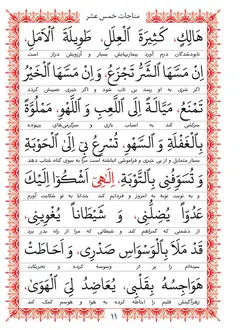 مناجات خمس عشر
هَالِكٍ، كَثِيرَةَ الْعِلَلِ، طَوِيلَةَ الْاَمَلِ،
نابودشدگان درم آورد بیماریهایش بسیار و آرزویش دراز است
اِنْ مَسَّهَا الشَّرُّ تَجْزَعُ، وَ اِنْ مَسَّهَا الْخَيْرُ
اگر شری به او رسد بی تاب شود و اگر خیری نصیبش گردد
تَمْنَعُ، مَيَّالَةً اِلَى اللَّعِبِ وَ اللَّهْوِ، مَمْلُوَّةً
سرکشی کند به اسباب بازی و سرگرمی‌های بیهوده
بِالْغَفْلَةِ وَ السَّهْوِ، تُسْرِعُ بِى اِلَى الْحَوْبَةِ
بسیار متمایل و از بی خبری و فراموشی انباشته است مرا به سوی گناه شتاب دهد
وَ تُسَوِّفُنِى بِالتَّوْبَةِ، اِلٰهِىٓ اَشْكُوٓا اِلَيْكَ
و به توبت توبه و امروز و فردایم کند خدایا به تو شکایت آورم
عَدُوًّا يُضِلُّنِى، وَ شَيْطَانًا يُغْوِينِى،
از دشمنی که گمراهم کند و شیطانی که مرا از راه بدر برد
قَدْ مَلَاَ بِالْوَسْوَاسِ صَدْرِى، وَ اَحَاطَتْ
سینه‌ام را پر از وسوسه کرده و تحریکات
هَوَاجِسُهُ بِقَلْبِى، يُعَاضِدُ لِىَ الْهَوىٰ،
زهرآگینش قلبم را احاطه کرده به هوا و هوسم کمک کند
۱۱